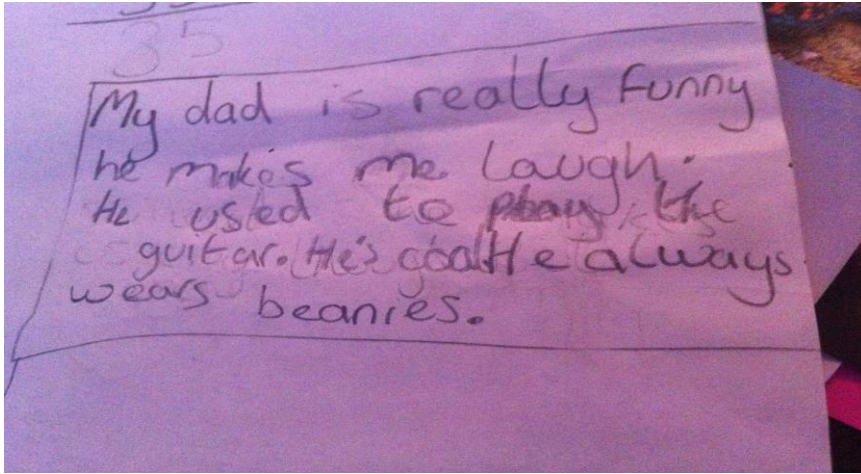 35
My dad is really funny
he makes me laugh.
He used to play the
guitar. He's He always
wears beanies.